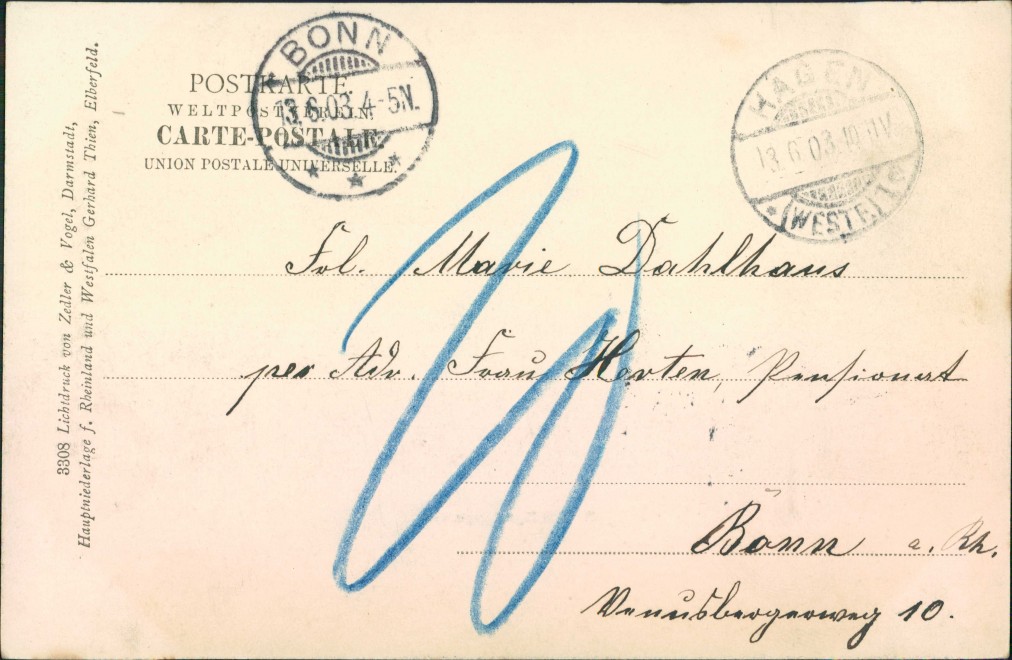 POSTKARTE.
WELTPOSTVEREIN.
CARTE-POSTALE.
UNION POSTALE UNIVERSELLE.
BONN
13.6.03.4-5N.
HAGEN
13.6.03.10-11V
(WESTF.) 1
Frl. Marie Dahlhaus
per Adr. Frau Herten, Pensionat
Bonn a. Rh.
Venusbergerweg 10.
3308 Lichtdruck von Zedler & Vogel, Darmstadt,
Hauptniederlage f. Rheinland und Westfalen Gerhard Thien, Elberfeld.